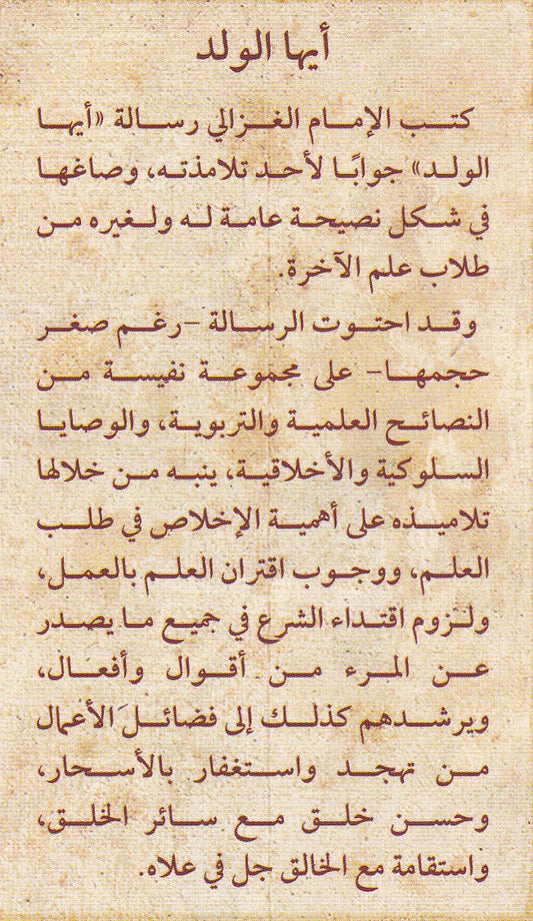 أيها الولد
كتب الإمام الغزالي رسالة «أيها
الولد» جوابًا لأحد تلامذته، وصاغها
في شكل نصيحة عامة له ولغيره من
طلاب علم الآخرة.
وقد احتوت الرسالة -رغم صغر
حجمها- على مجموعة نفيسة من
النصائح العلمية والتربوية، والوصايا
السلوكية والأخلاقية، ينبه من خلالها
تلاميذه على أهمية الإخلاص في طلب
العلم، ووجوب اقتران العلم بالعمل،
ولزوم اقتداء الشرع في جميع ما يصدر
عن المرء من أقوال وأفعال،
ويرشدهم كذلك إلى فضائل الأعمال
من تهجد واستغفار بالأسحار،
وحسن خلق مع سائر الخلق،
واستقامة مع الخالق جل في علاه.